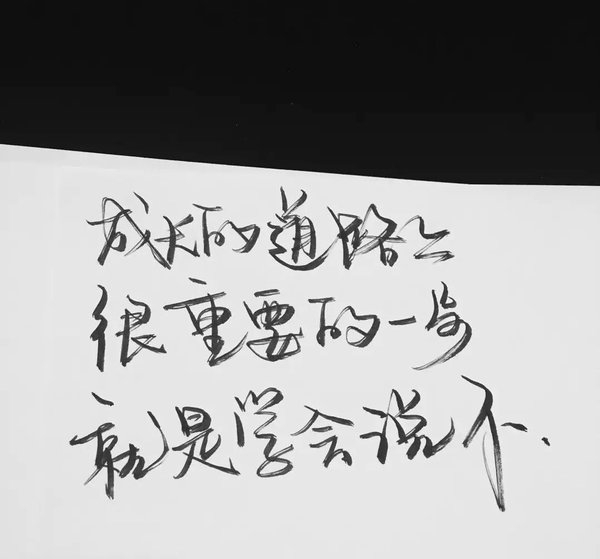 成长的道路上
很重要的一步
就是学会说不.